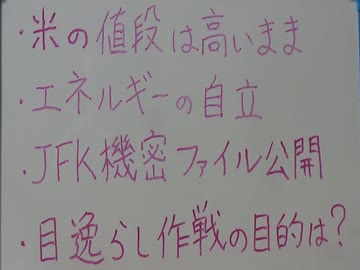 ・米の値段は高いまま
・エネルギーの自立
・JFK機密ファイル公開
・目逸らし作戦の目的は?